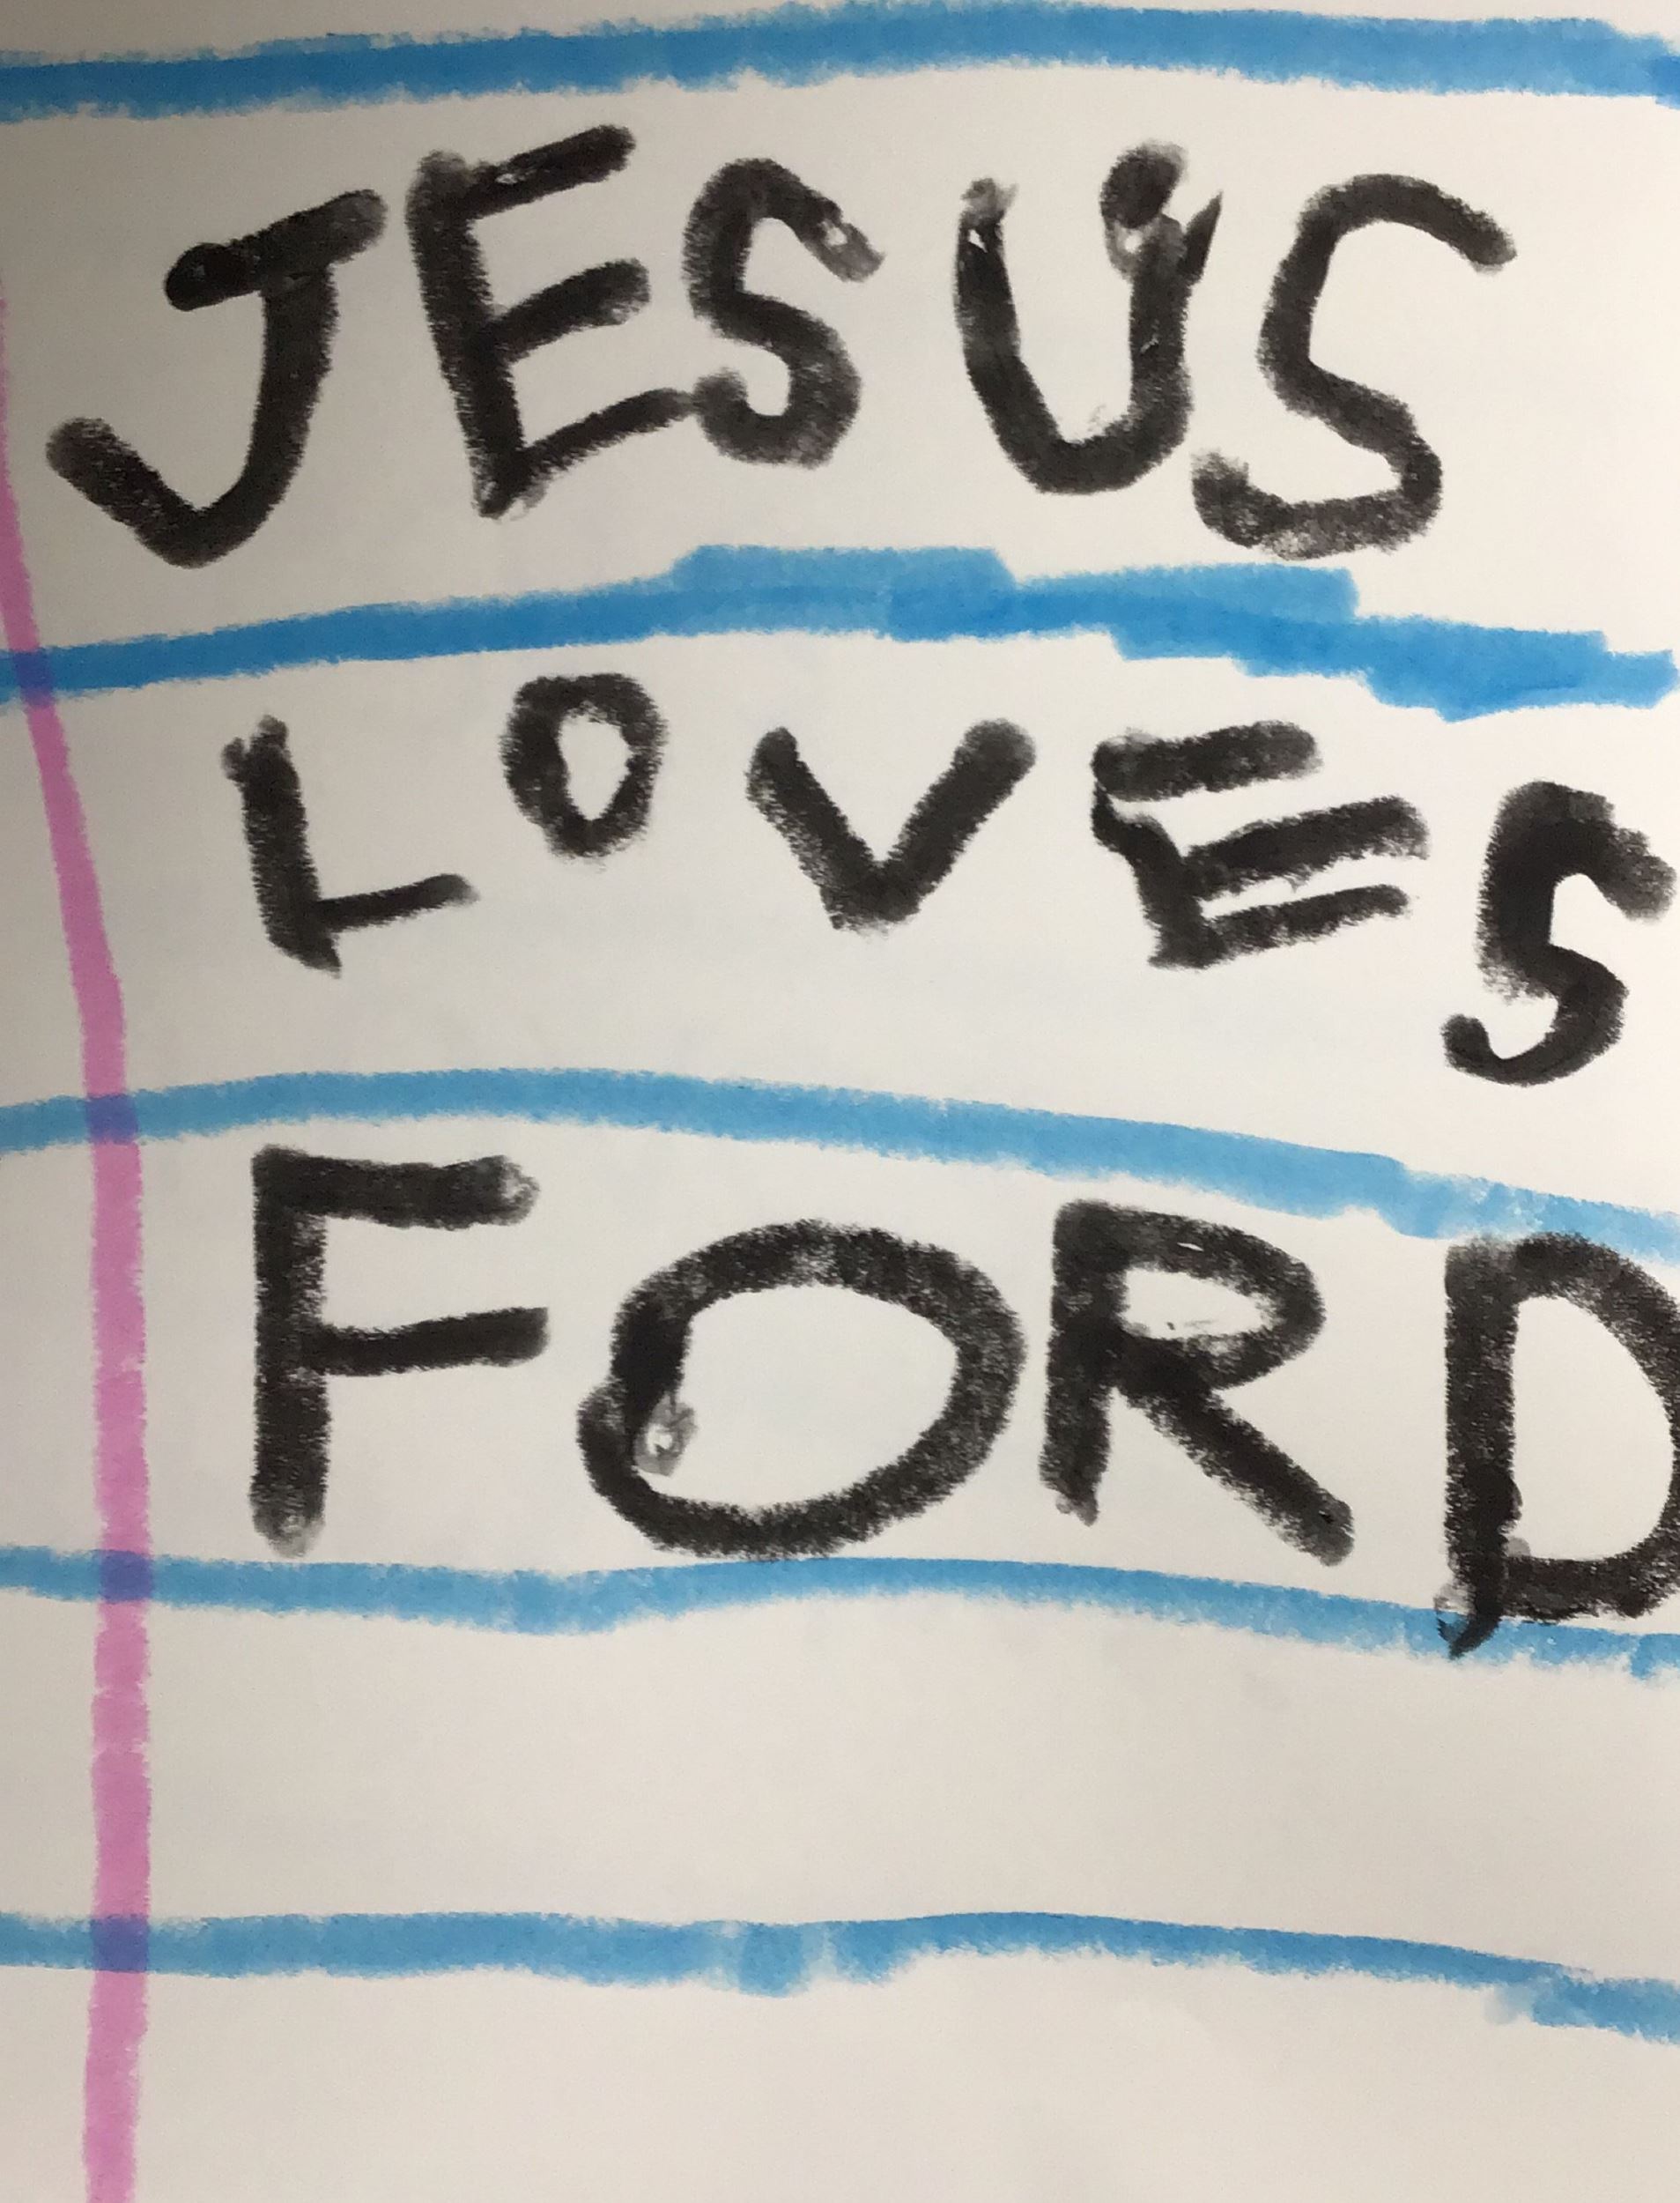 JESUS
LOVES
FORD